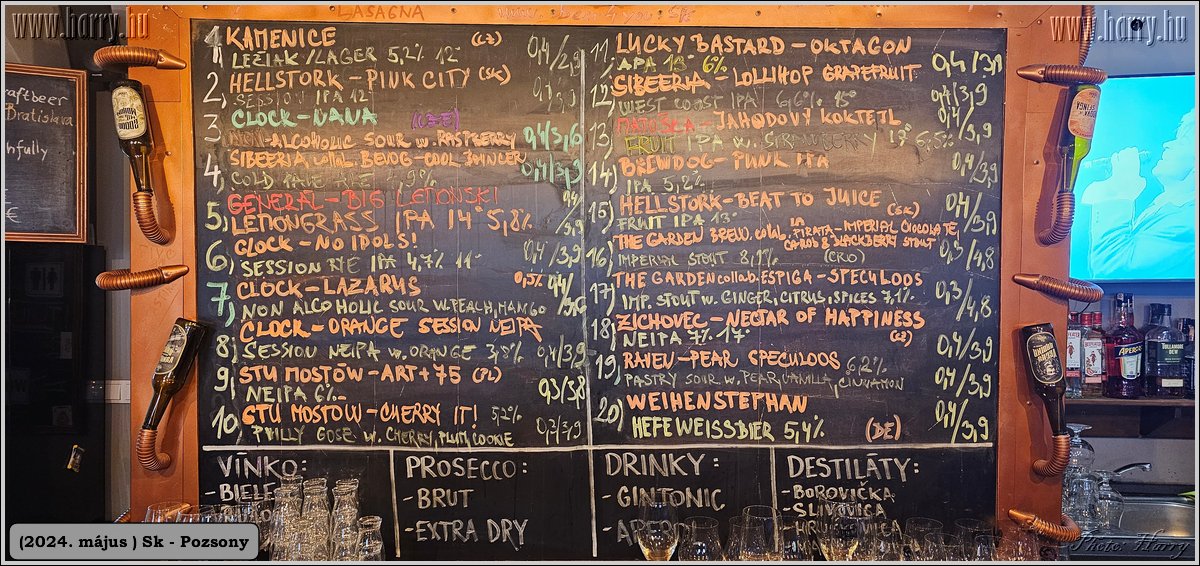 www.harry.hu
LASAGNA
www.harry.hu
craftbeer
Bratislava
1, KAMENICE (CZ)
LEŽIAK/LAGER 5,2% 12° 0,4/2,9
2, HELLSTORK-PINK CITY (SK)
SESSION IPA 12°
3, CLOCK-NANA
NON-ALCOHOLIC SOUR W. RASPBERRY 0,4/3,6
4, SIBEERIA
COLD PALE ALE
5, GENERAL-BIG LEMONSKI
LEMONGRASS IPA 14° 5,8%
6, CLOCK-NO IDOLS!
SESSION RYE IPA 4,7% 11° 0,4/3,9
7, CLOCK-LAZARUS 0,5%
NON ALCOHOLIC SOUR W. PEACH, MANGO
8, CLOCK-ORANGE SESSION NEIPA
SESSION NEIPA W. ORANGE 3,8% 0,4/3,9
9, STU MOSTÓW-ART+75 (PL)
NEIPA 6% 0,3/3,8
10, STU MOSTÓW-CHERRY IT! 5,2%
PHILLY GOSE W. CHERRY, PLUM, COOKIE 0,3/3,9
11, LUCKY BASTARD-OKTAGON
APA 13° 6% 0,4/3,9
12, SIBEERIA-LOLLIHOP GRAPEFRUIT
WEST COAST IPA 6,6% 15° 0,4/3,9
13, MATUŠKA-JAHODOVÝ KOKTEJL
FRUIT IPA W. STRAWBERRY 0,4/3,9
14, BREWDOG-PUNK IPA
IPA 5,2% 0,4/3,9
15, HELLSTORK-BEAT TO JUICE (SK)
FRUIT IPA 13° 0,4/3,9
16, THE GARDEN BREW. collab. LA PIRATA-IMPERIAL CHOCOLATE,
CAROB & BLACKBERRY STOUT
IMPERIAL STOUT 8,1% (CRO) 0,3/4,8
17, THE GARDEN collab. ESPIGA-SPECULOOS
IMP. STOUT W. GINGER, CITRUS, SPICES 7,1% 0,3/4,8
18, ZICHOVEC-NECTAR OF HAPPINESS
NEIPA 7% 17° (CZ) 0,4/3,9
19, RAHEU-PEAR SPECULOOS 6,2%
PASTRY SOUR W. PEAR, VANILLA, CINNAMON 0,4/3,9
20, WEIHENSTEPHAN
HEFEWEISSBIER 5,4% (DE) 0,4/3,9
VÍNKO:
-BIELE
PROSECCO:
-BRUT
-EXTRA DRY
DRINKY:
-GINTONIC
DESTILÁTY:
-BOROVIČKA
-SLIVOVICA
-HRUŠKOVICA
APEROL
TULLAMORE
DEW
(2024. május ) Sk - Pozsony
Photo: Harry